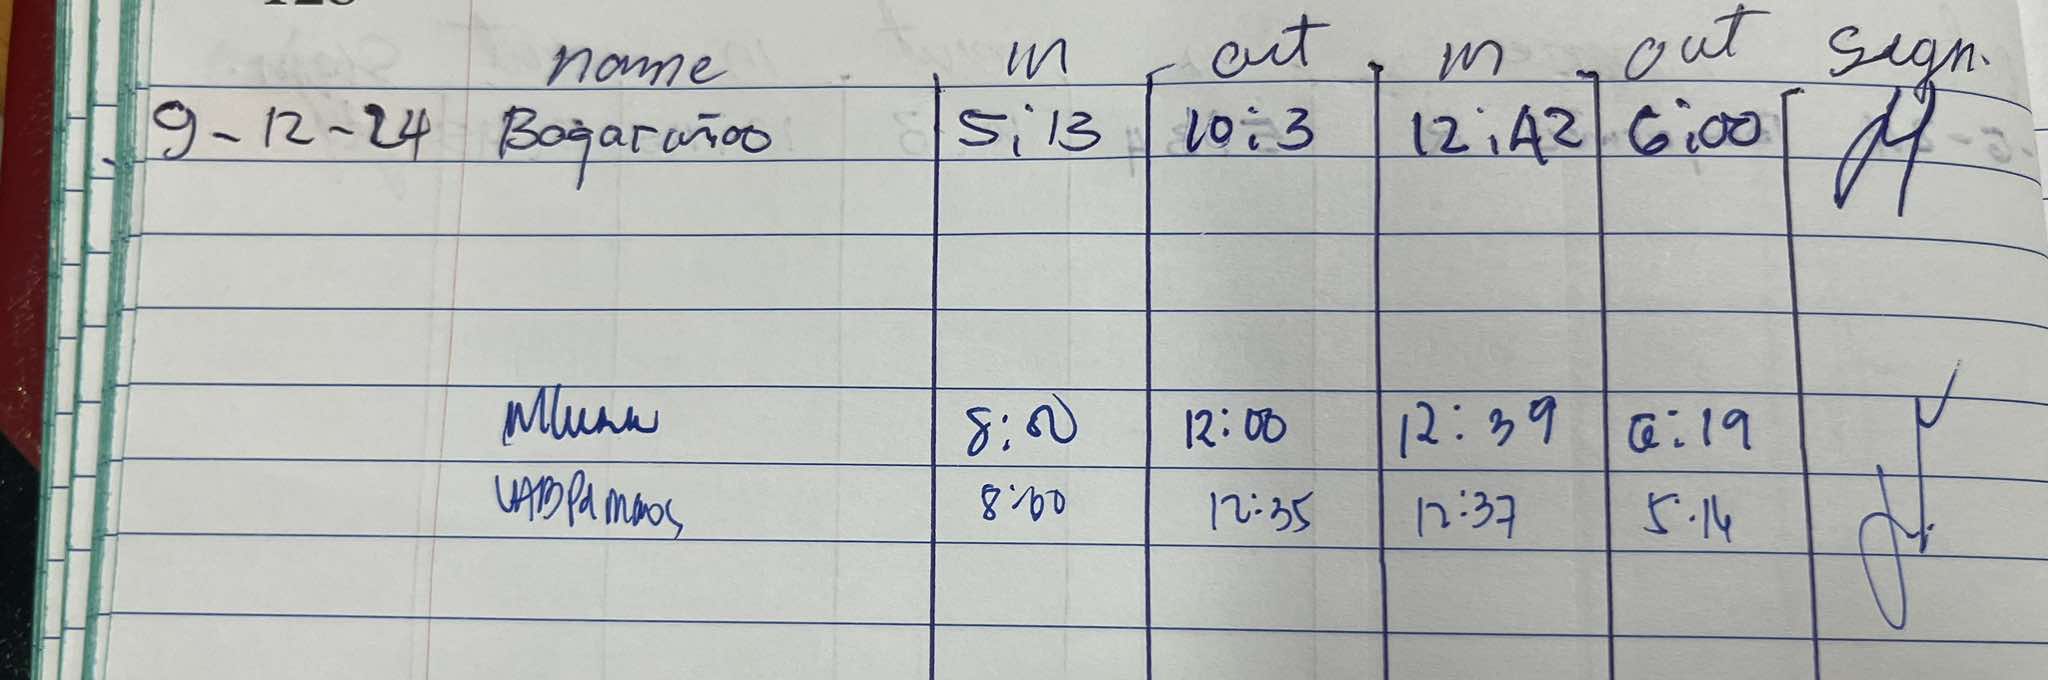 name in out in out sign.
9-12-24 5:13 10:3 12:42 6:00
8:00 12:00 12:39 6:19
8:00 12:35 12:37 5:14